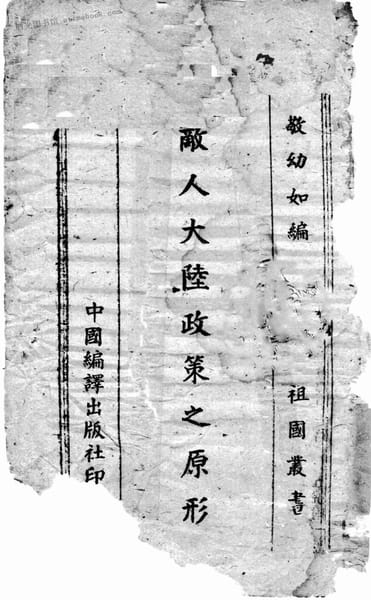 敬幼如編
祖國叢書
敵人大陸政策之原形
中國編譯出版社印